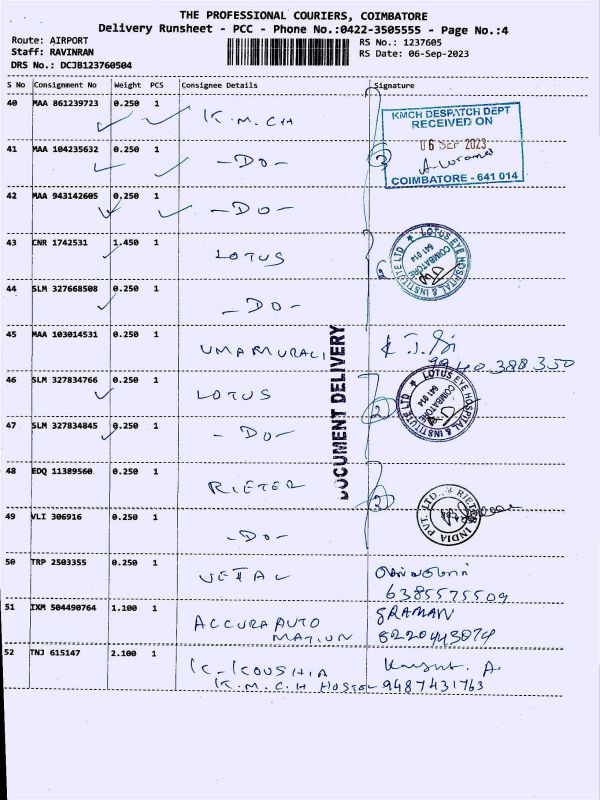 THE PROFESSIONAL COURIERS, COIMBATORE
Delivery Runsheet - PCC - Phone No.:0422-3505555 - Page No.:4
Route: AIRPORT
RS No.: 1237605
Staff: RAVINRAN
RS Date: 06-Sep-2023
DRS No.: DCJB123760504
S No Consignment No Weight PCS Consignee Details Signature
40 MAA 861239723 0.250 1 K.M.CH
KMCH DESPATCH DEPT
RECEIVED ON
06 SEP 2023
COIMBATORE - 641 014
41 MAA 104235632 0.250 1 -DO- 3
42 MAA 943142605 0.250 1 -DO-
43 CNR 1742531 1.450 1 LOTUS
LOTUS EYE HOSPITAL & INSTITUTE LTD
COIMBATORE
641 014
44 SLM 327668508 0.250 1 -DO-
45 MAA 103014531 0.250 1 UMAMURALI
9940388350
DOCUMENT DELIVERY
46 SLM 327834766 0.250 1 LOTUS
LOTUS EYE HOSPITAL & INSTITUTE LTD
COIMBATORE
641 014
47 SLM 327834845 0.250 1 -DO- 2
48 EDQ 11389560 0.250 1 RIETER
RIETER INDIA PVT. LTD.
49 VLI 306916 0.250 1 -DO-
50 TRP 2503355 0.250 1
6385575509
51 IXM 504490764 1.100 1 ACCURAAUTO
MATION
52 TNJ 615147 2.100 1
K.M.C.H HOSTEL 9487431763